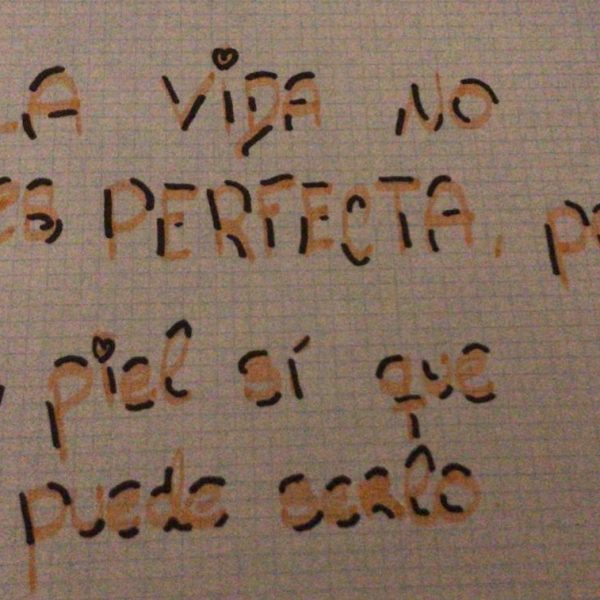 LA VIDA NO
ES PERFECTA, pe
piel sí que
puede serlo